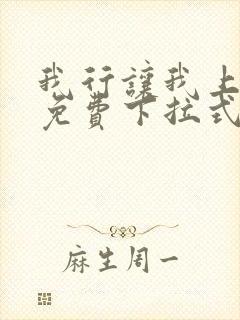 我行讓我上
免費下拉式
麻生周一